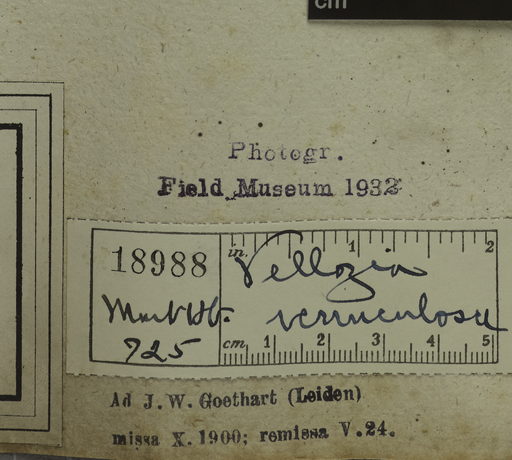 cm
Photogr.
Field Museum 1932
18988
in. 1 2
Vellozia
verruculosa
725
cm 1 2 3 4 5
Ad J. W. Goethart (Leiden)
missa X. 1900; remissa V. 24.